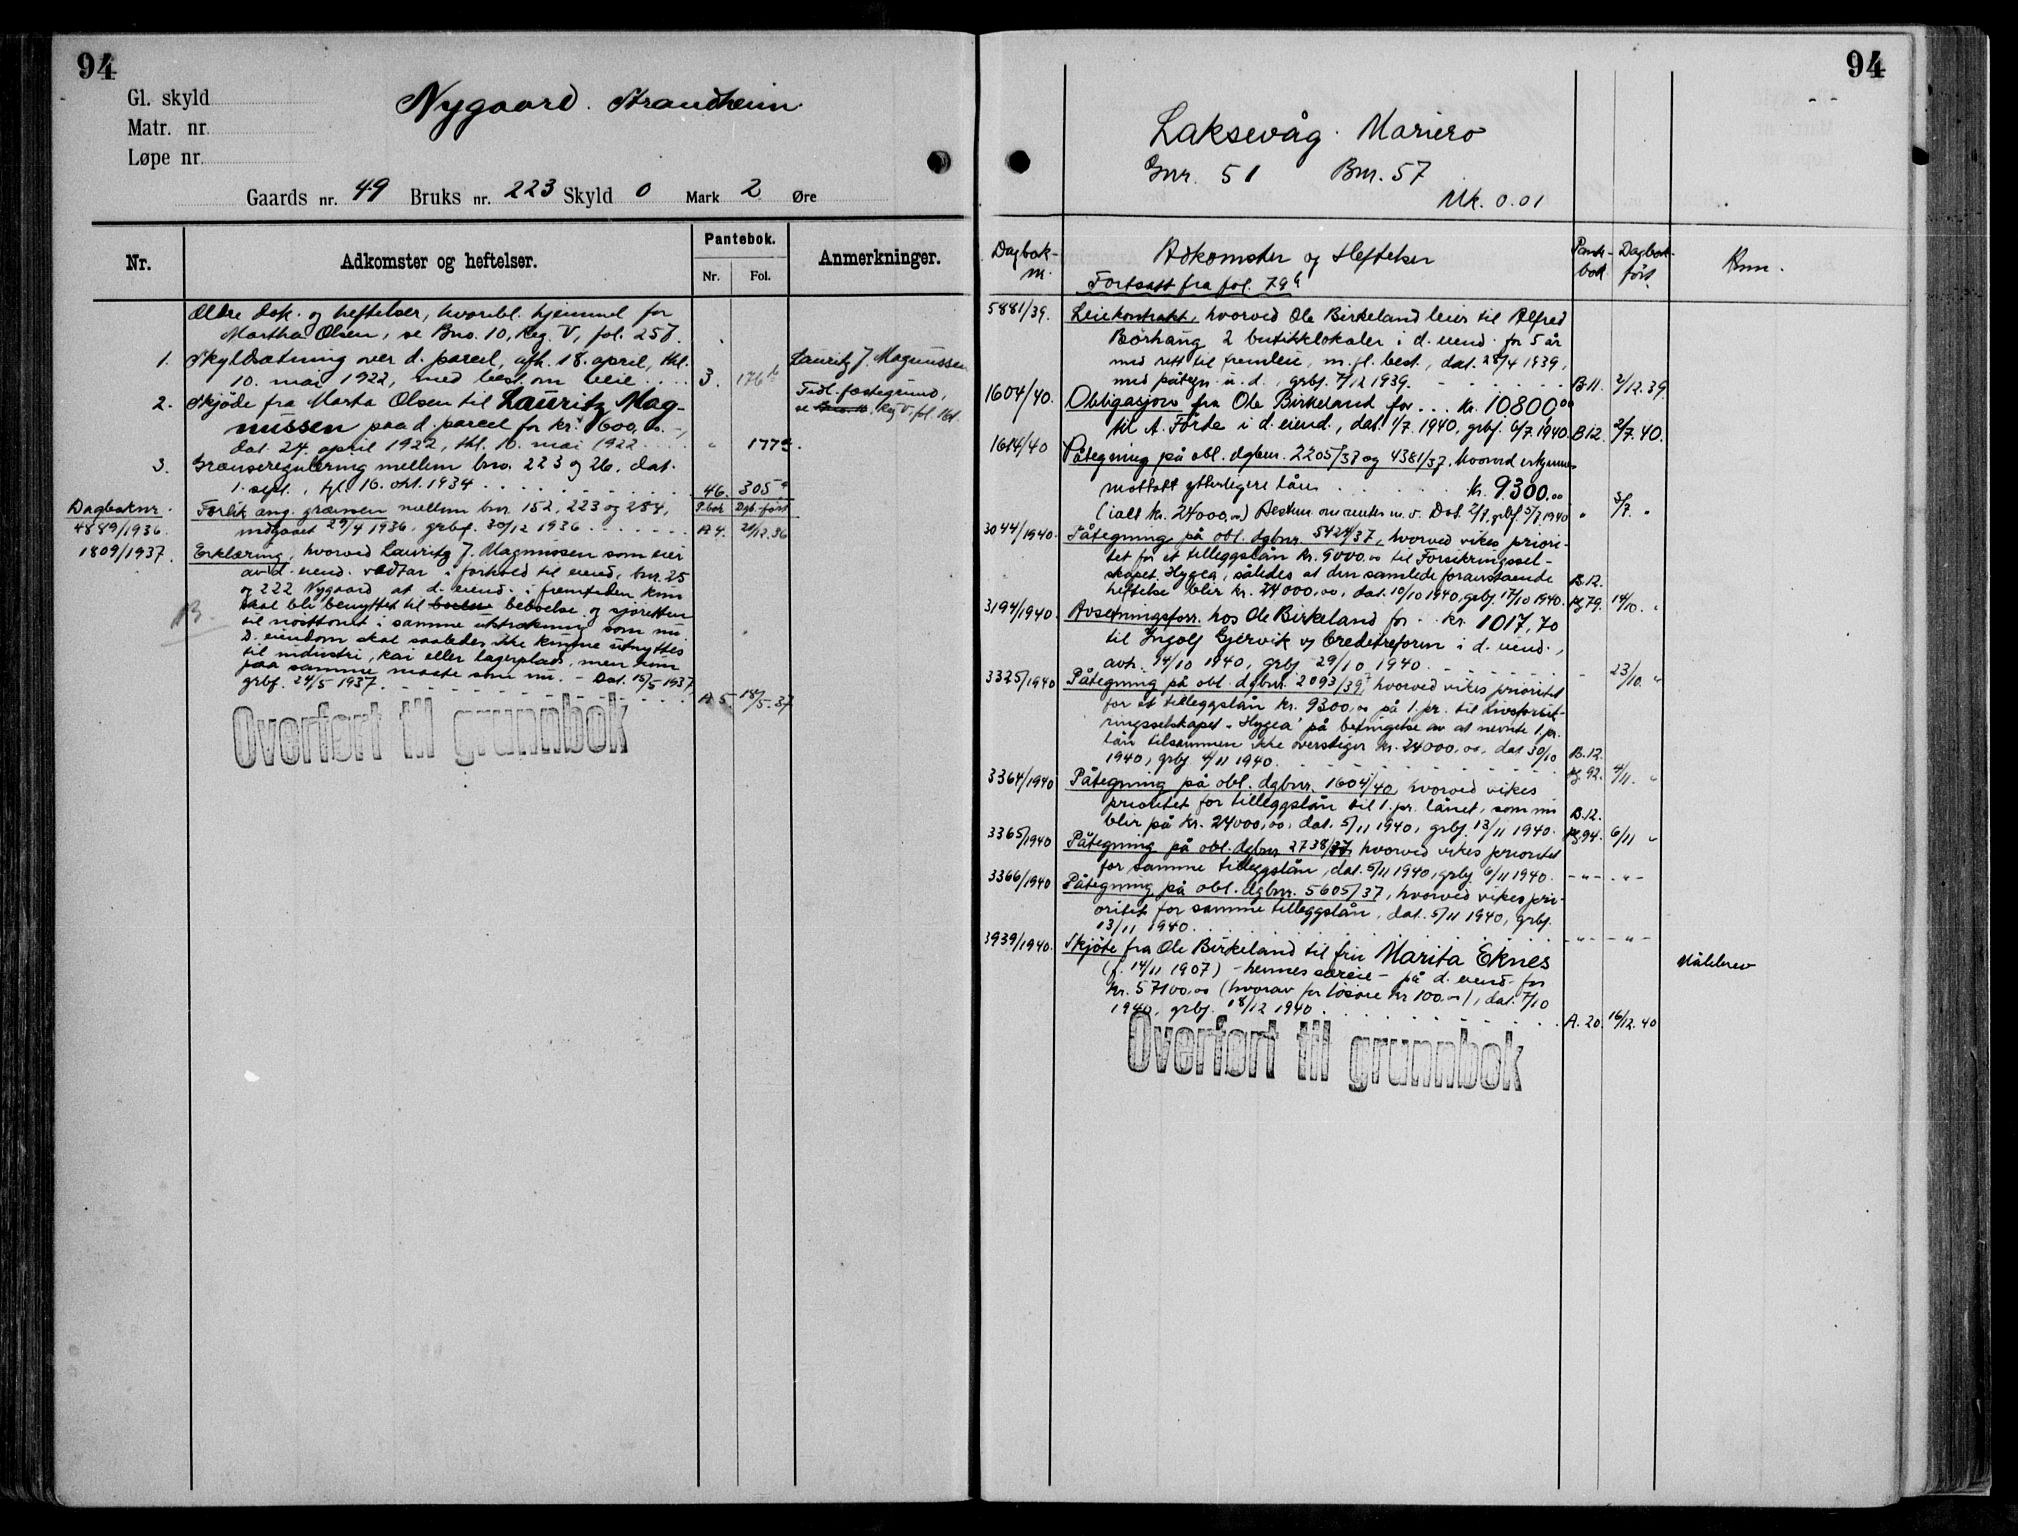 94
Gl. skyld
Matr. nr.
Løpe nr.
Nygaard. Strandheim
Gaards nr. 49 Bruks nr. 223 Skyld 0 Mark 2 Øre
Nr.
Adkomster og heftelser.
Pantebok.
Nr. Fol.
Anmerkninger.
Ældre dok. og heftelser, hvoribl. hjemmel for
Martha Olsen, se Bno. 10, Reg. V, fol. 257.
1. Skyldsætning over d. parcel, afh. 18. april, thl.
10. mai 1922, med best. om veie 3. 176b
Lauritz J. Magnussen
2. Skjøde fra Marta Olsen til Lauritz Mag-
nussen paa d. parcel for kr. 600,00
dat. 24. april 1922, thl. 10. mai 1922 " 177a
Tidl. festegrund,
se Reg. V. fol. 161.
3. Grænseregulering mellem bno. 223 og 26, dat.
1. sept., tgl. 16. okt. 1934 46. 305a
Dagboknr. P.bok Dgb. ført
4889/1936 Forlik ang. grænsen mellem bnr. 152, 223 og 254,
indgaaet 29/4 1936, grbf. 30/12 1936 A 4. 20/12.36
1809/1937. Erklæring, hvorved Lauritz J. Magnussen som eier
av d. eiend. vedtar i forhold til eiend. bnr. 25
og 222 Nygaard at d. eiend. i fremtiden kun
skal bli benyttet til beboelse og sjøretten
til nøsttomt i samme utstrækning som nu.
D. eiendom skal saaledes ikke kunne utnyttes
til industri, kai eller lagerplads, men kun
paa samme maate som nu. - Dat. 15/5 1937,
grbf. 24/5 1937. A 5. 18/5-37
Overført til grunnbok
94
Laksevåg. Mariero
Gnr. 51 Bnr. 57
Mk. 0.01
Dagbok-
nr.
Adkomster og Heftelser
Pante-
bok
Dagbok-
ført.
Anm.
Fortsatt fra fol. 79b
5881/39. Leiekontrakt, hvorved Ole Birkeland leier til Alfred
Børhaug 2 butikklokaler i d. eiend. for 5 år
med rett til fremleie, m. fl. best., dat. 28/4 1939,
med påtegn. u. d., grbf. 7/12 1939. B 11. 2/12.39
1604/40. Obligasjon fra Ole Birkeland for ... kr. 10800,00
til A. Førde i d. eiend., dat. 1/7. 1940, grbf. 6/7. 1940. B 12. 2/7.40.
1614/40 Påtegning på obl. dgbnr. 2205/37 og 4381/37, hvorved erkjennes
mottatt ytterligere lån kr. 9300,00
(ialt kr. 24000,00) Bestem. om renter m. v. Dat. 2/7, grbf. 5/7 1940 " 3/7. "
3044/1940. Påtegning på obl. dgbnr. 5424/37, hvorved vikes priori-
tet for et tilleggslån kr. 9000,00 til Forsikringssel-
skapet Hygea, således at den samlede foranstående
heftelse blir kr. 24000,00, dat. 10/10 1940, grbf. 17/10 1940. B. 12. pg. 79. 14/10. "
3194/1940. Avsetningsforr. hos Ole Birkeland for kr. 1017,70
til Ingolf Gjervik og Creditreform i d. eiend.,
avh. 14/10 1940, grbf. 29/10 1940. - 23/10. "
3325/1940 Påtegning på obl. dgbnr. 2093/39, hvorved vikes prioritet
for et tilleggslån kr. 9300,00 på 1. pr. til Livsforsik-
ringsselskapet "Hygea" på betingelse av at nevnte 1. pr.
lån tilsammen ikke overstiger kr. 24000,00, dat. 30/10
1940, grbf. 4/11 1940. B. 12. pg. 92. 4/11. "
3364/1940 Påtegning på obl. dgbnr. 1604/40, hvorved vikes
prioritet for tilleggslån til 1. pr. lånet, som nu
blir på kr. 24000,00, dat. 5/11 1940, grbf. 13/11 1940. B. 12. pg. 94. 6/11 "
3365/1940 Påtegning på obl. dgbnr. 2738/37, hvorved vikes prioritet
for samme tilleggslån, dat. 5/11 1940, grbf. 6/11 1940. - " - - " -
3366/1940 Påtegning på obl. dgbnr. 5605/37, hvorved vikes pri-
oritet for samme tilleggslån, dat. 5/11 1940, grbf.
13/11 1940. - " - - " -
3939/1940. Skjøte fra Ole Birkeland til fru Marita Eknes
(f. 14/11 1907) - hennes særeie - på d. eiend. for
kr. 57100,00 (hvorav for løsøre kr 100,00), dat. 7/10
1940, grbf. 18/12 1940. A. 20. 16/12.40
Målebrev
Overført til grunnbok